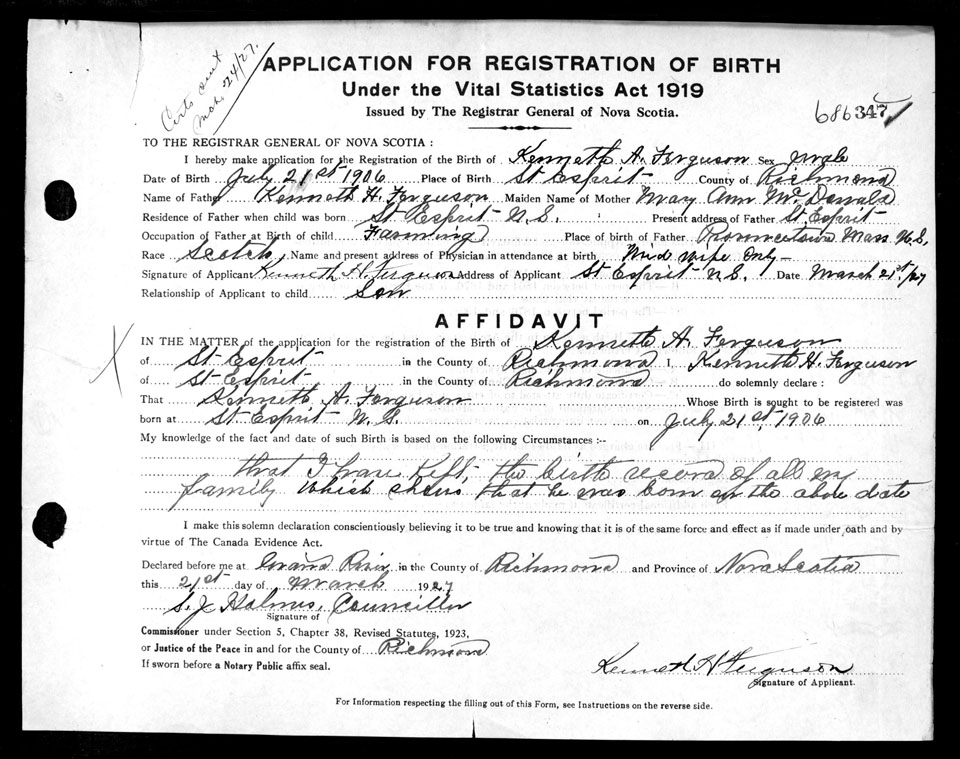 Certs sent
Mar 24/27.
APPLICATION FOR REGISTRATION OF BIRTH
Under the Vital Statistics Act 1919
Issued by The Registrar General of Nova Scotia.
686347
TO THE REGISTRAR GENERAL OF NOVA SCOTIA :
I hereby make application for the Registration of the Birth of Kenneth A. Ferguson Sex male
Date of Birth July 21st 1906 Place of Birth St Esprit County of Richmond
Name of Father Kenneth H. Ferguson Maiden Name of Mother Mary Ann McDonald
Residence of Father when child was born St Esprit N.S. Present address of Father St. Esprit
Occupation of Father at Birth of child Farming Place of birth of Father Mass U.S.
Race Scotch Name and present address of Physician in attendance at birth Mid wife Only
Signature of Applicant Kenneth H. Ferguson Address of Applicant St Esprit N.S. Date March 21st/27
Relationship of Applicant to child Son
AFFIDAVIT
IN THE MATTER of the application for the registration of the Birth of Kenneth A. Ferguson
of St Esprit in the County of Richmond I, Kenneth H. Ferguson
of St Esprit in the County of Richmond do solemnly declare :
That Kenneth A. Ferguson Whose Birth is sought to be registered was
born at St Esprit N.S. on July 21st, 1906
My knowledge of the fact and date of such Birth is based on the following Circumstances :--
that I have Kept, the birth record of all my
family which shows that he was born on the above date
I make this solemn declaration conscientiously believing it to be true and knowing that it is of the same force and effect as if made under oath and by
virtue of The Canada Evidence Act.
Declared before me at Grand River in the County of Richmond and Province of Nova Scotia
this 21st day of March 1927
S. J. Holmes, Councillor
Signature of
Commissioner under Section 5, Chapter 38, Revised Statutes, 1923,
or Justice of the Peace in and for the County of Richmond
If sworn before a Notary Public affix seal.
Kenneth H Ferguson
Signature of Applicant.
For Information respecting the filling out of this Form, see Instructions on the reverse side.